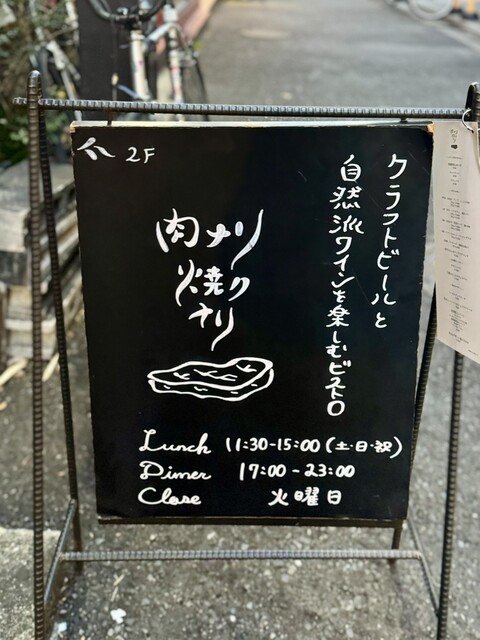 2F
クラフトビールと
自然派ワインを楽しむビストロ
肉ナリ
焼ク
ナリ
Lunch 11:30-15:00(土・日・祝)
Dinner 17:00-23:00
Close 火曜日